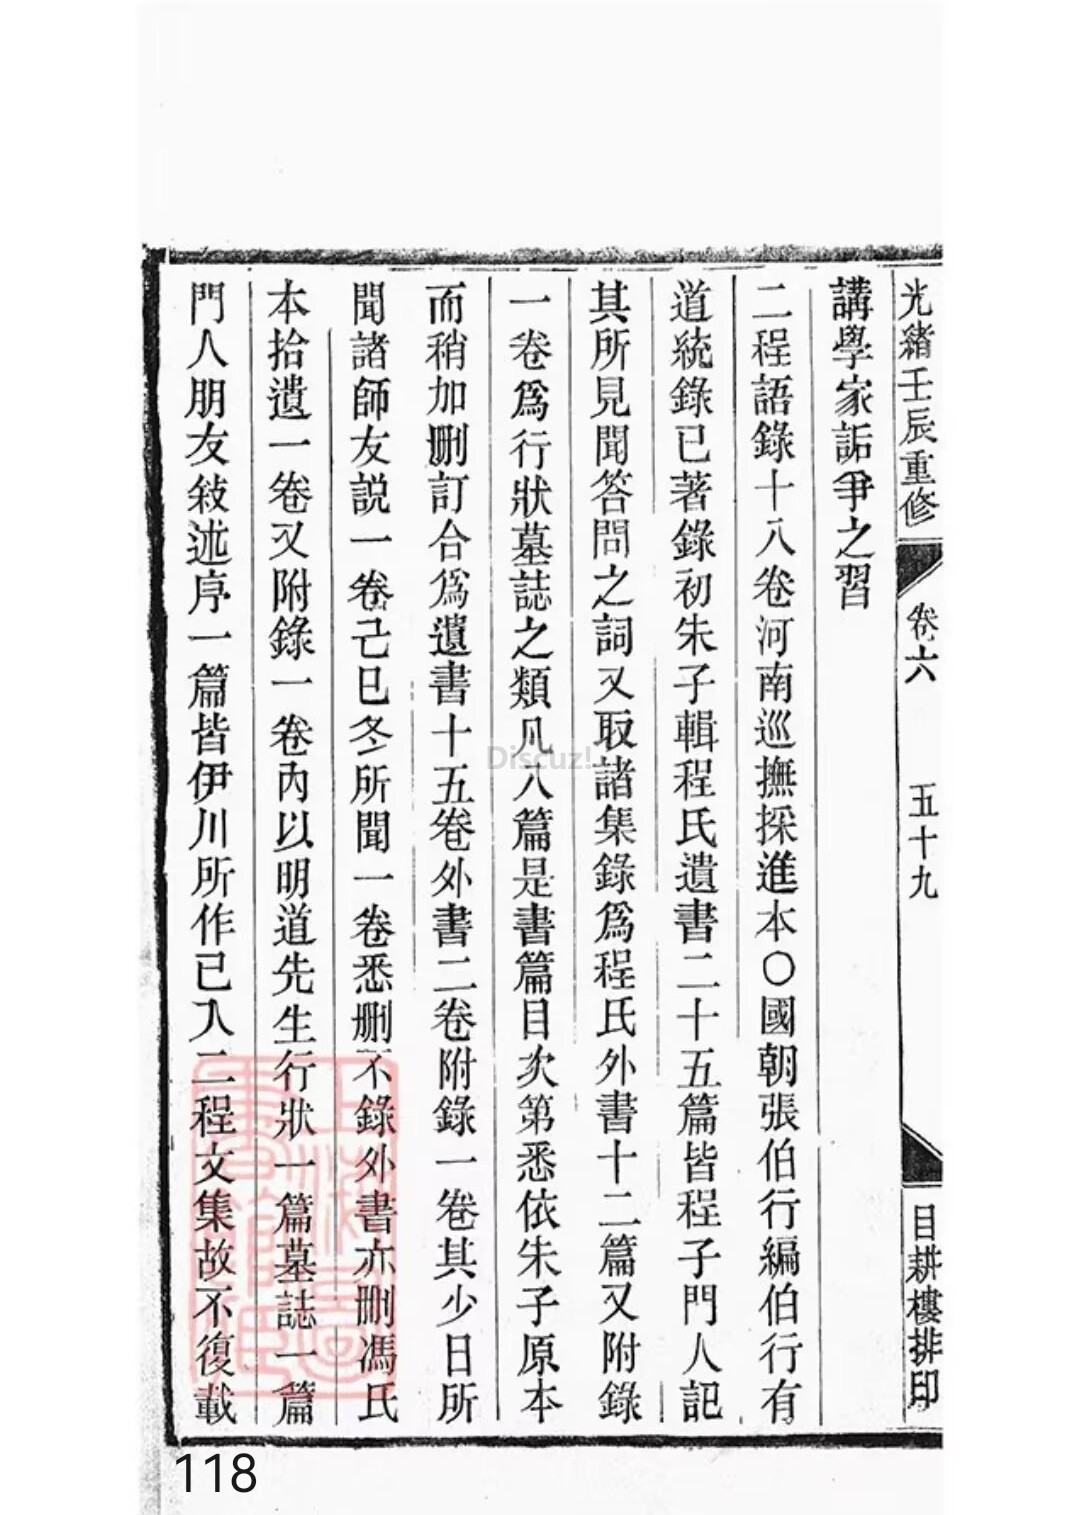 光緒壬辰重修
卷六
五十九
目耕樓排印
講學家詬爭之習
二程語錄十八卷河南巡撫採進本〇國朝張伯行編伯行有
道統錄已著錄初朱子輯程氏遺書二十五篇皆程子門人記
其所見聞答問之詞又取諸集錄爲程氏外書十二篇又附錄
一卷爲行狀墓誌之類凡八篇是書篇目次第悉依朱子原本
而稍加删訂合爲遺書十五卷外書二卷附錄一卷其少日所
聞諸師友説一卷己巳冬所聞一卷悉删不錄外書亦删馮氏
本拾遺一卷又附錄一卷內以明道先生行狀一篇墓誌一篇
門人朋友敍述序一篇皆伊川所作已入二程文集故不復載
Discuz!
118